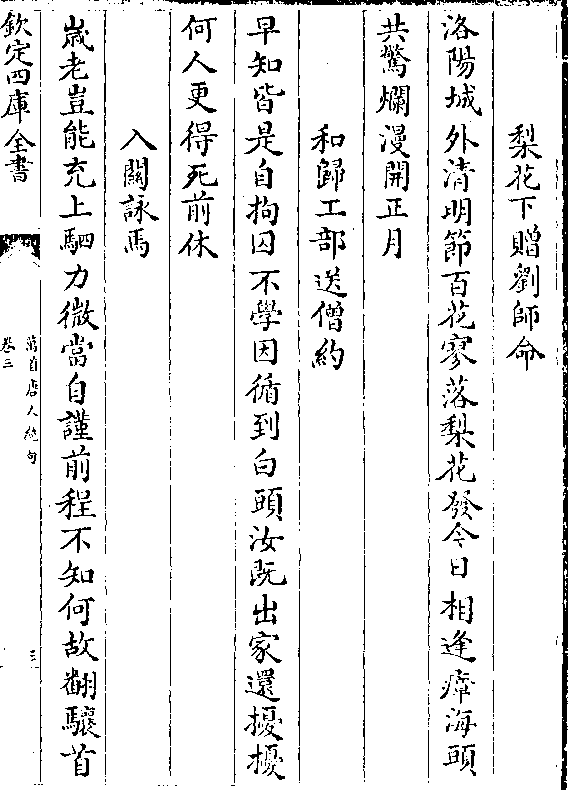 梨花下贈劉師命
洛陽城外清明節百花寥落梨花發今日相逢瘴海頭
共驚爛漫開正月
和歸工部送僧約
早知皆是自拘囚不學因循到白頭汝既出家還擾擾
何人更得死前休
入關詠馬
嵗老豈能充上駟力微當自謹前程不知何故翻驤首
欽定四庫全書
萬首唐人絶句
卷三
三